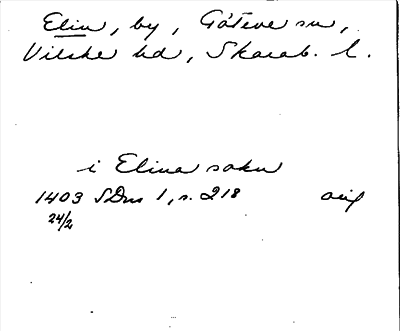 Elin, by, Göteve sn,
Vilske hd, Skarab. l.
i Elina sokn
1403 SDns 1, s. 218 orig
24/2